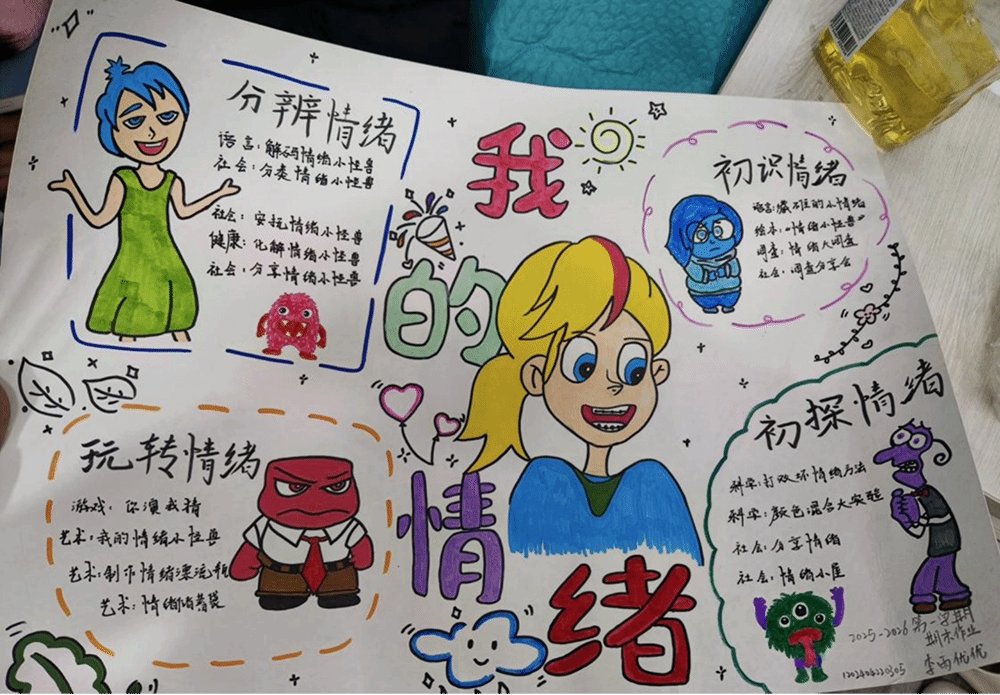 我的情绪
分辨情绪
语言:解码情绪小怪兽
社会:分类情绪小怪兽
社会:安抚情绪小怪兽
健康:化解情绪小怪兽
社会:分享情绪小怪兽
初识情绪
语言:藏在的小情绪
绘本:"情绪小怪兽"
调查:情绪大调查
社会:调查分享会
玩转情绪
游戏:你演我猜
艺术:我的情绪小怪兽
艺术:制作情绪漂流瓶
艺术:情绪储蓄袋
初探情绪
科学:打败坏情绪方法
科学:颜色混合大实验
社会:分享情绪
社会:情绪小屋
2025-2026第一学期
期末作业
李雨优优